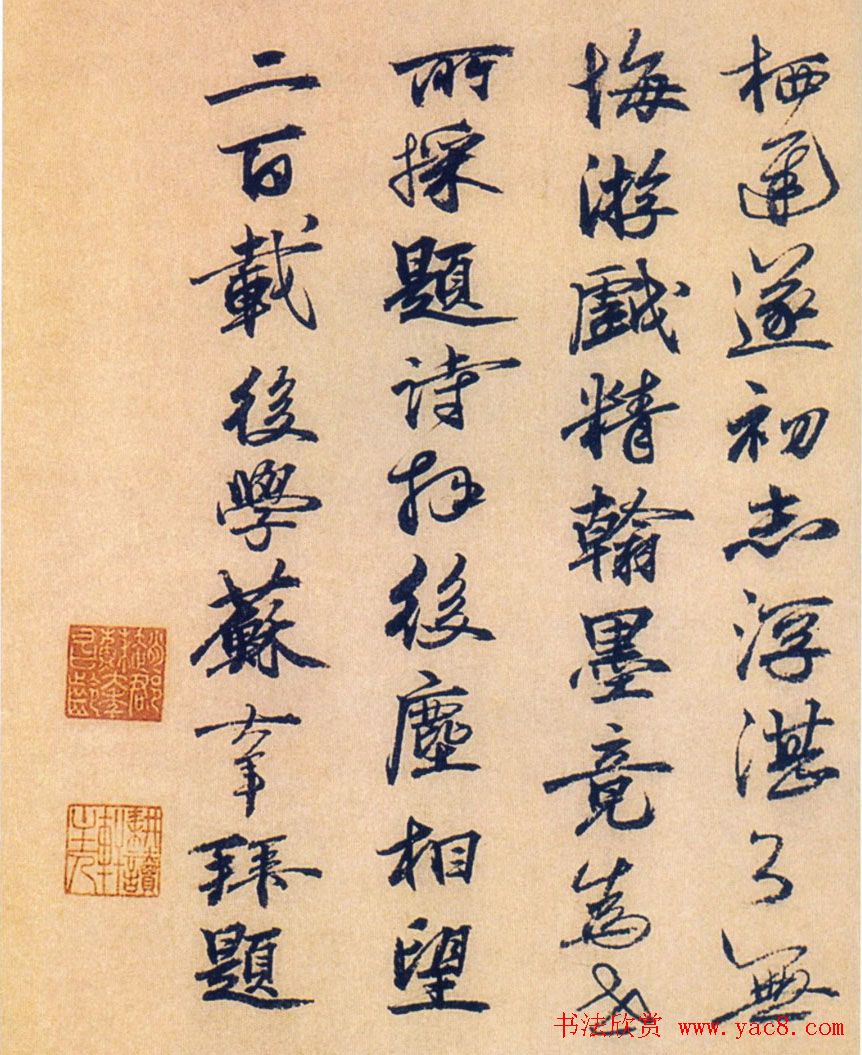 栖遁遂初志浮湛了無
悔游戲精翰墨竟為世
所採題詩於後塵相望
二百載後學蘇大年拜題
书法欣赏 www.yac8.com